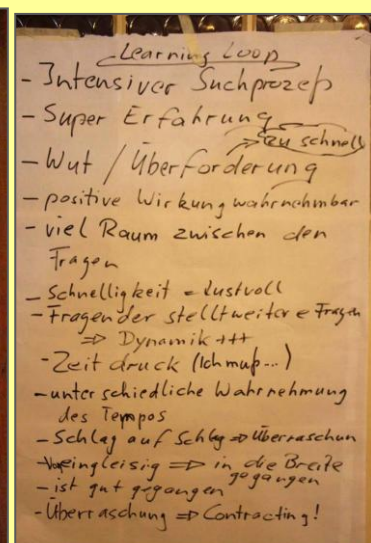 Learning Loop
- Intensiver Suchprozeß
- Super Erfahrung
zu schnell
- Wut / Überforderung
- positive Wirkung wahrnehmbar
- viel Raum zwischen den
Fragen
- Schnelligkeit = lustvoll
- Fragender stellt weitere Fragen
=> Dynamik +++
- Zeitdruck (Ich muß...)
- unterschiedliche Wahrnehmung
des Tempos
- Schlag auf Schlag => Überraschun
- eingleisig => in die Breite
gegangen
- ist gut gegangen
- Überraschung => Contracting!